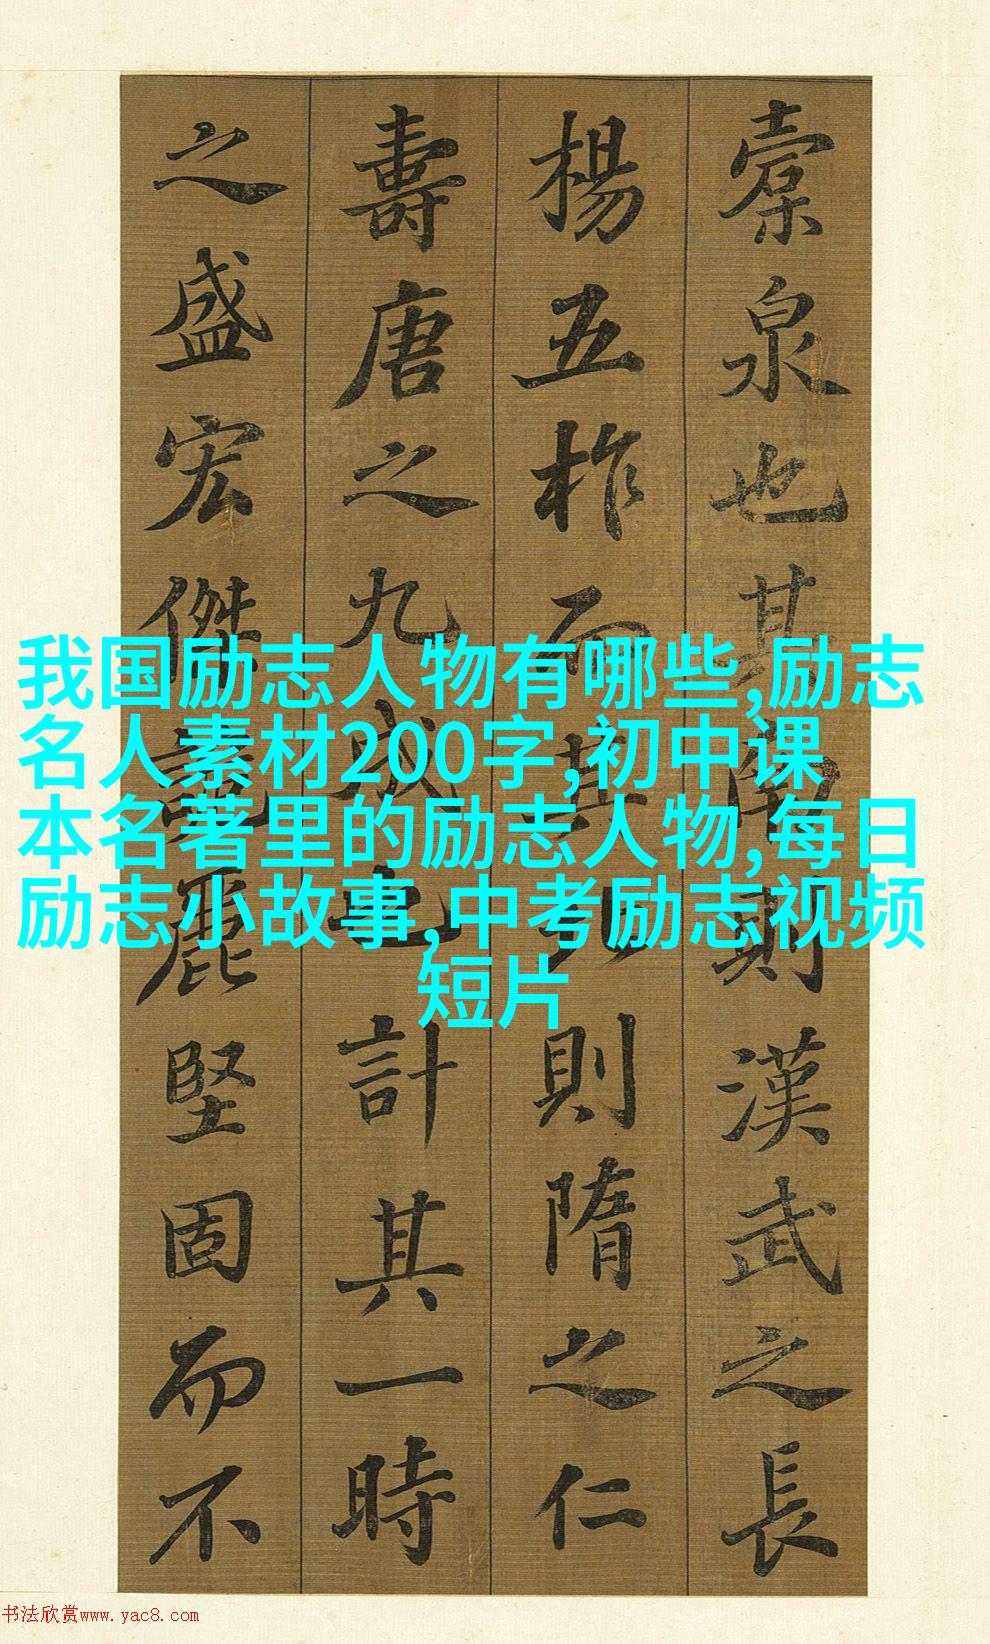 橐泉也其南則漢武之長
楊五柞而其北則隋之仁
壽唐之九成也計其一時
之盛宏傑詭麗堅固而不
我国励志人物有哪些,励志
名人素材200字,初中课
本名著里的励志人物,每日
励志小故事,中考励志视频
短片
书法欣赏www.yac8.com